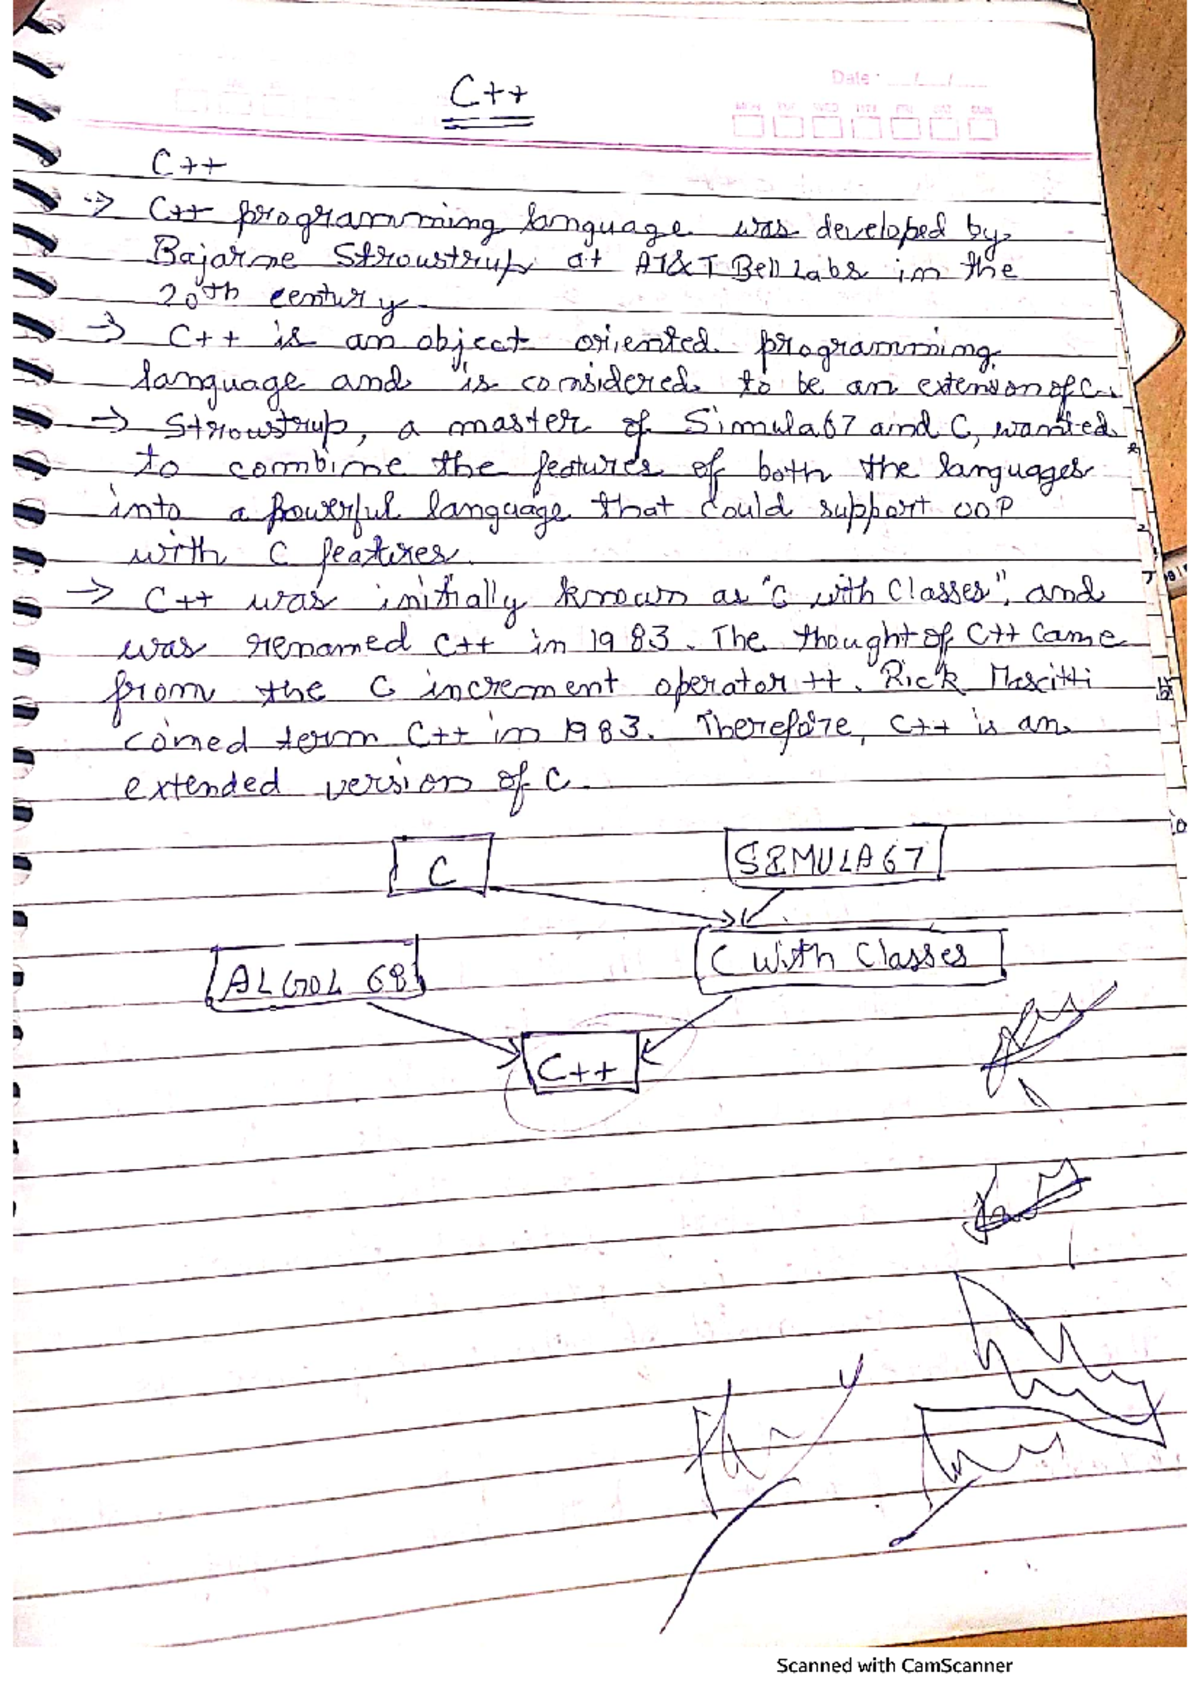 C++
Date : __/__/__
C++
→ C++ programming language was developed by
Bajarne Stroustrup at AT&T Bell Labs in the
20th century.
→ C++ is an object oriented programming
language and is considered to be an extension of C.
→ Stroustrup, a master of Simula67 and C, wanted
to combine the features of both the languages
into a powerful language that could support OOP
with C features.
→ C++ was initially known as "C with Classes", and
was renamed C++ in 1983. The thought of C++ came
from the C increment operator ++. Rick Mascitti
coined term C++ in 1983. Therefore, C++ is an
extended version of C.
C
SIMULA67
ALGOL 68
C with Classes
C++
Scanned with CamScanner